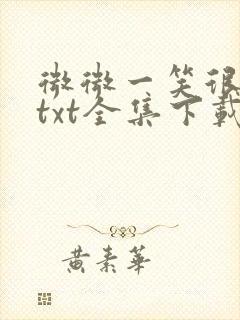 微微一笑很
txt全集下载
黄素华